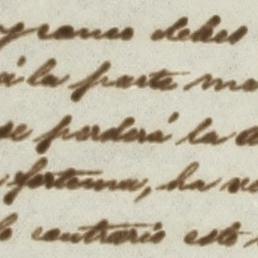 debes
á la parte
se perderá la
fortuna, ha
contrario este